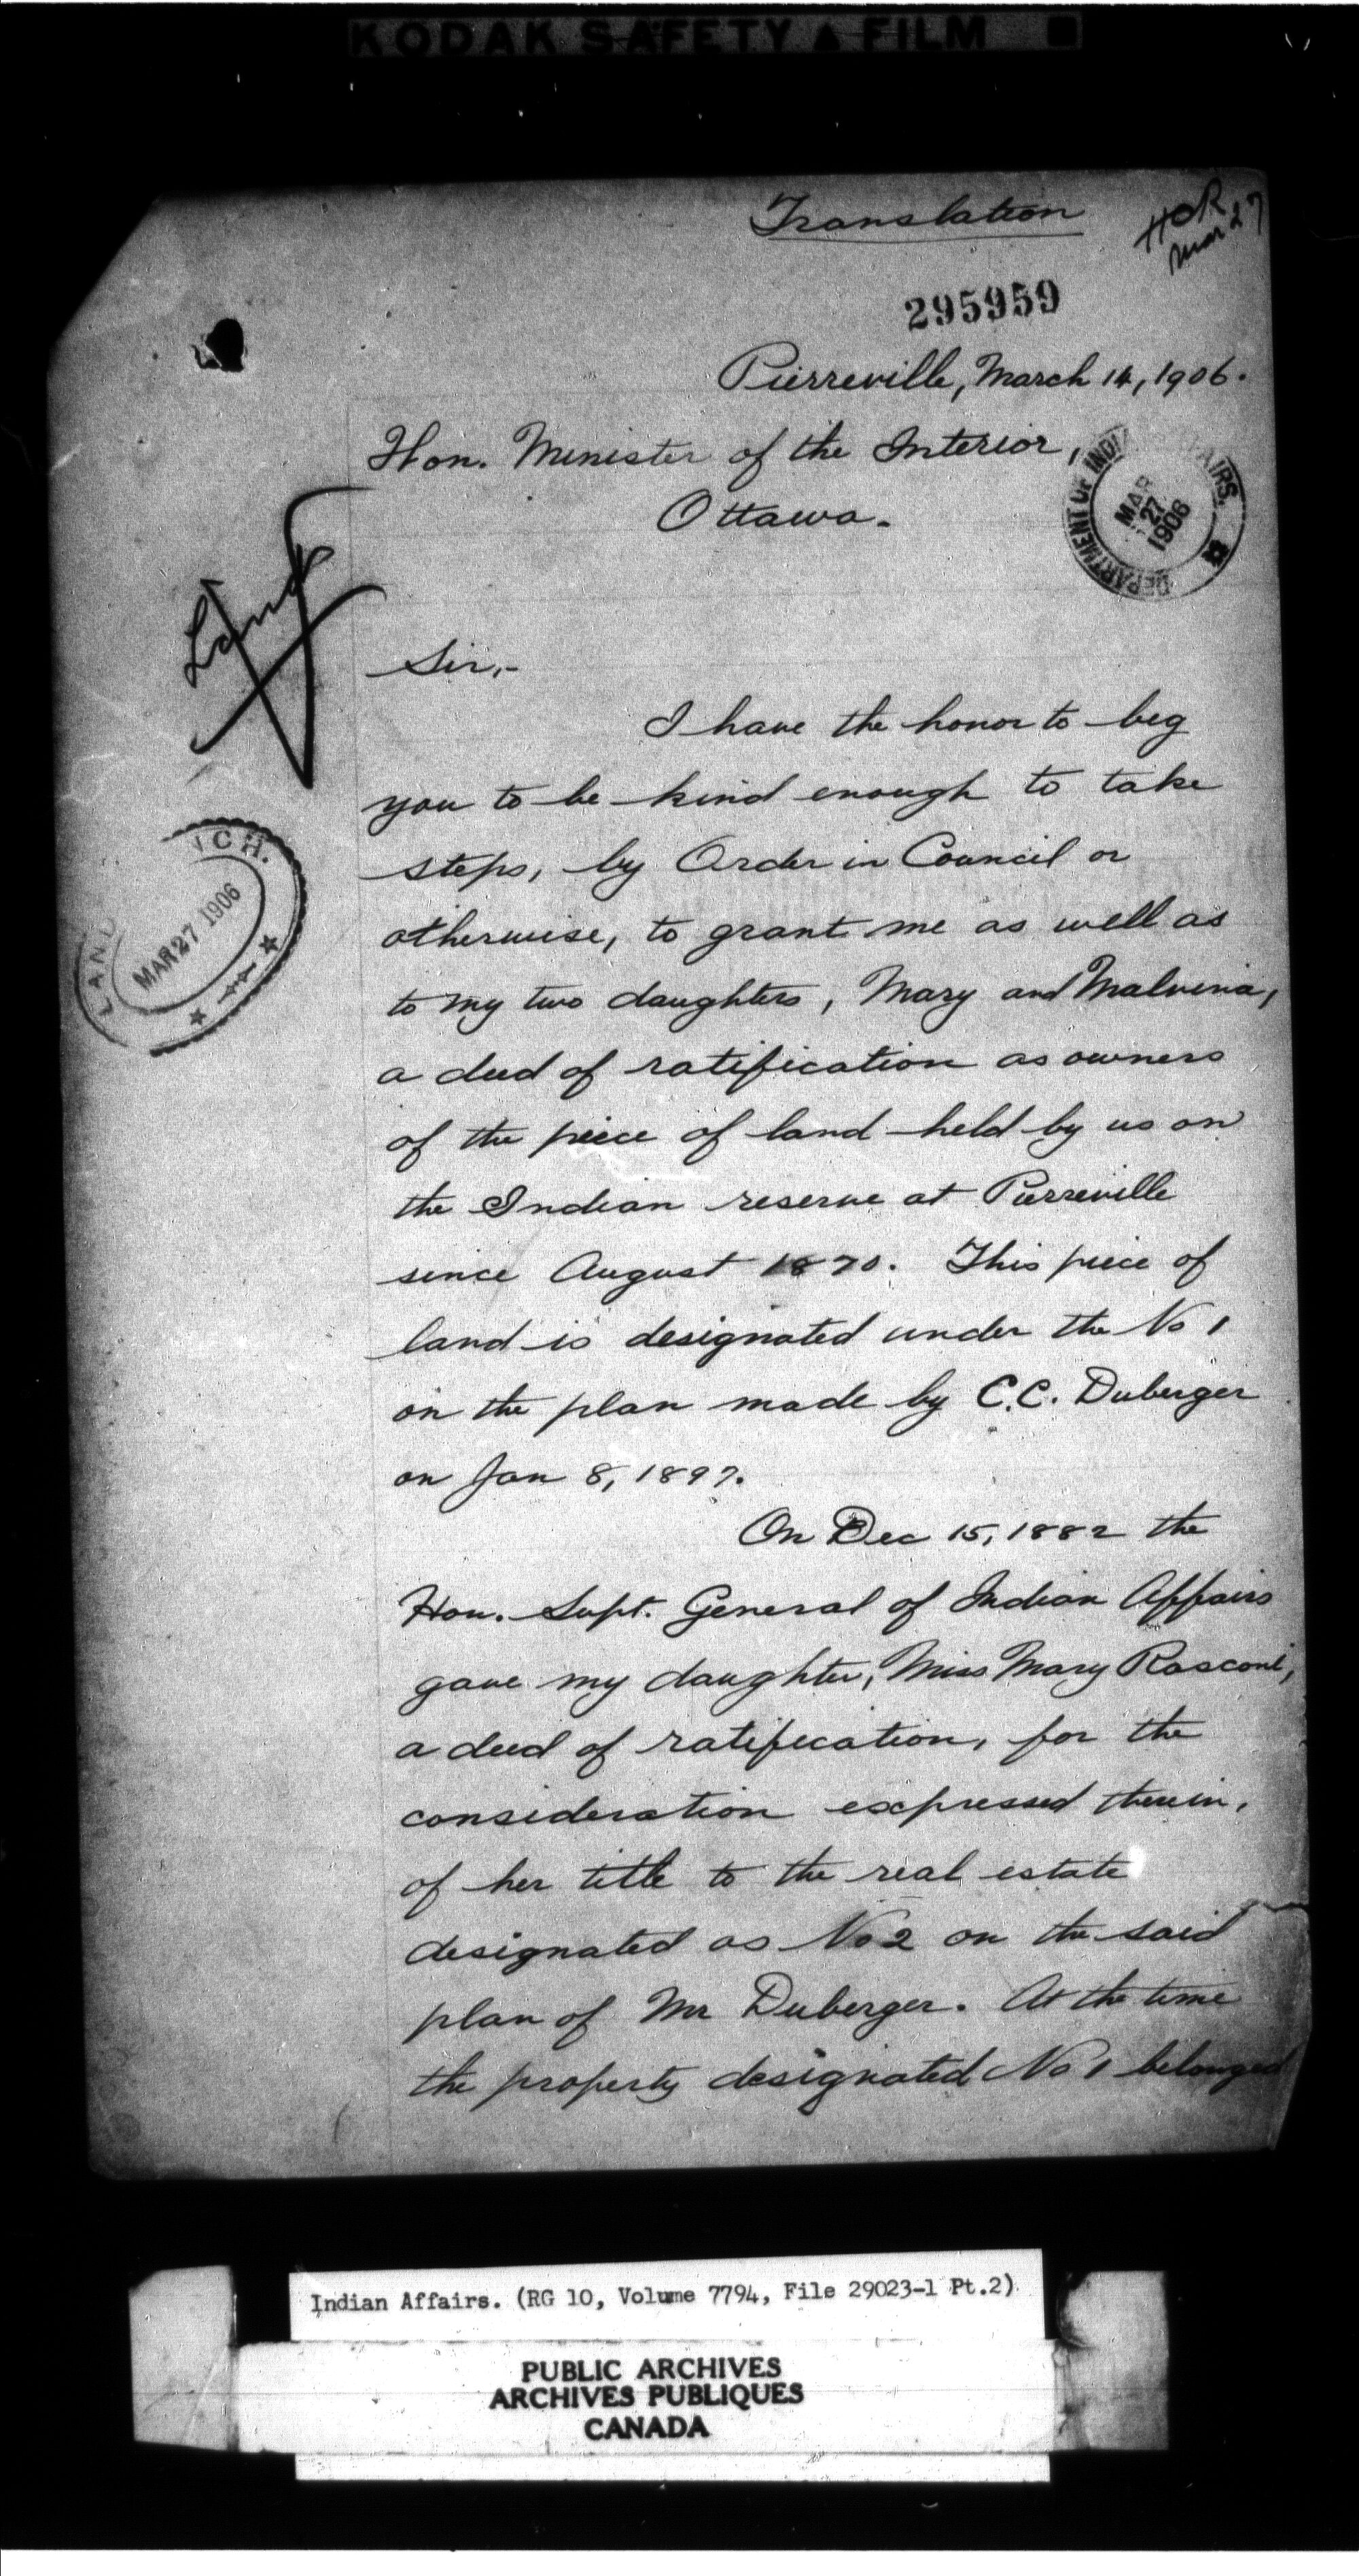 KODAK SAFETY ▲ FILM
Translation
HCR
Mar 27
295959
Pierreville, March 14, 1906.
Hon. Minister of the Interior,
Ottawa.
DEPARTMENT OF INDI AIRS.
MAR
27
1906
Land
Sir,-
I have the honor to beg
you to be kind enough to take
steps, by Order in Council or
otherwise, to grant me as well as
to my two daughters, Mary and Malvina,
a deed of ratification as owners
of the piece of land held by us on
the Indian reserve at Pierreville
since August 1870. This piece of
land is designated under the No 1
on the plan made by C.C. Duberger
on Jan 8, 1897.
LAND NCH.
MAR 27 1906
On Dec 15, 1882 the
Hon. Supt. General of Indian Affairs
gave my daughter, Miss Mary Rasconi,
a deed of ratification, for the
consideration expressed therein,
of her title to the real estate
designated as No 2 on the said
plan of Mr Duberger. At the time
the property designated No 1 belonged
Indian Affairs. (RG 10, Volume 7794, File 29023-1 Pt.2)
PUBLIC ARCHIVES
ARCHIVES PUBLIQUES
CANADA